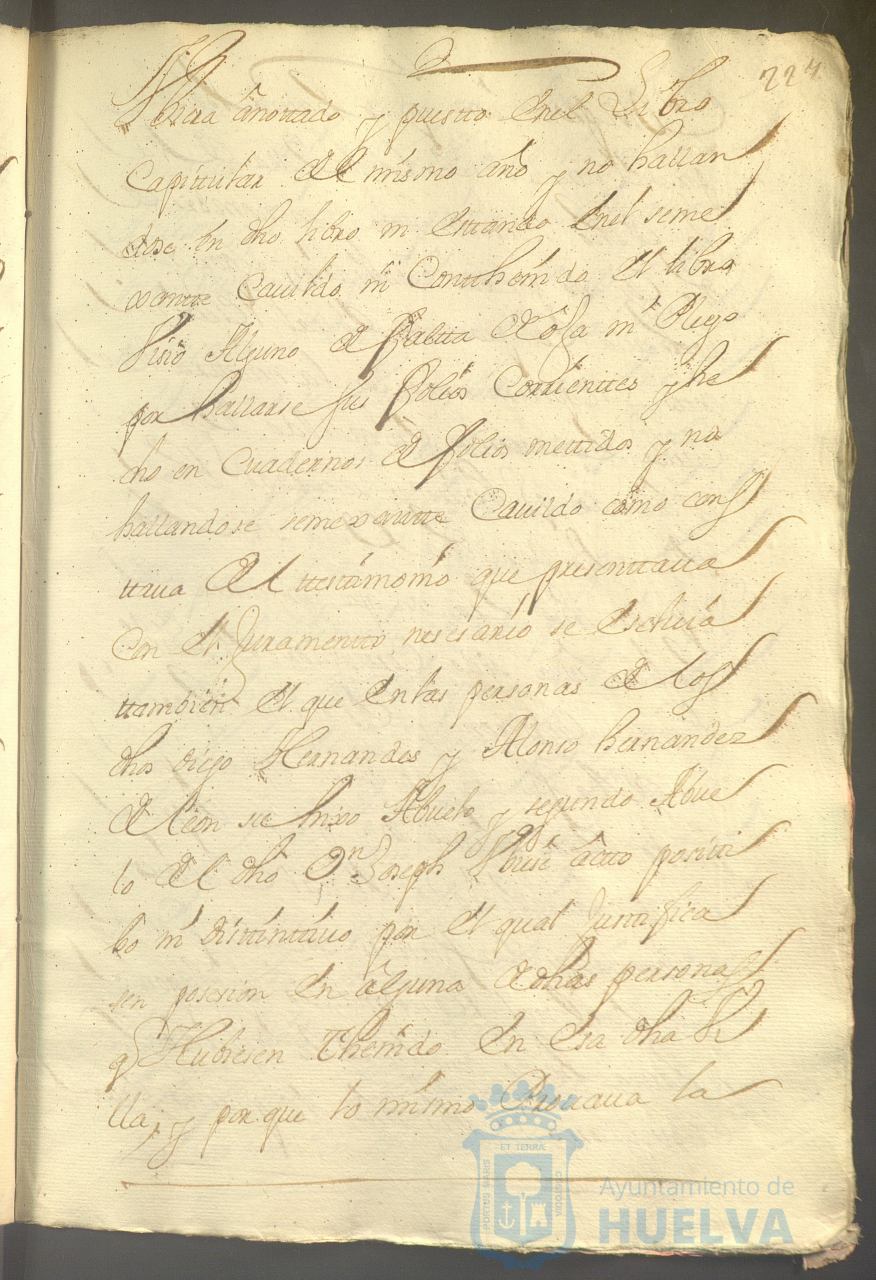 224
anottado y puestto enel Libro
Capittular del mismo año y no hallan
dose en dho libro ni estando enel seme
xantte Cavildo ni Conthenido el libro
visio Alguno de faltta de oja ni Pliego
por hallarse sus folios Corrienttes y he
cho en Cuadernos de folios mettidos y no
hallandose semexantte Cavildo como cons
ttava del ttestimonio que presenttava
Con el Juramentto nesesario se
ttambien el que en las personas de los
dhos diego Hernandes y Alonso hernandez
de leon su Abuelo y segundo Abue
lo del dho Dn Joseph actto positi
bo ni disttinttivo por el qual Justtifica
sen posesion en alguna de dhas personas
q Hubiesen Thenido en esa dha Vi
lla, y por que lo mismo Provava la
ET TERRÆ
PORTUS MARIS
CUSTODIA
Ayuntamiento de
HUELVA